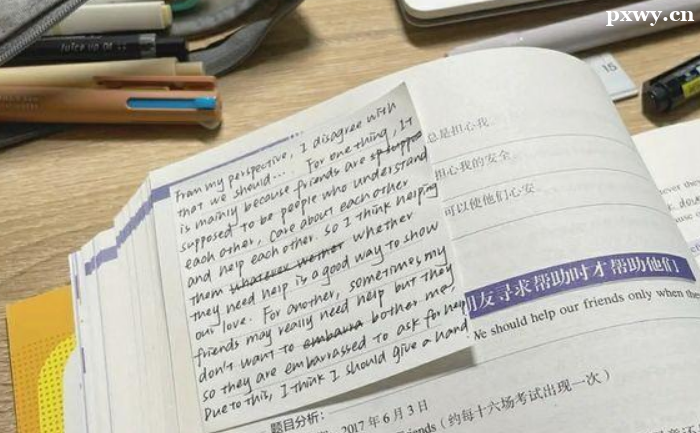 pxwy.cn
15
From my perspective, I disagree with
that we should.... For one thing, It
is mainly because friends are
supposed to be people who understand
each other, care about each other
and help each other. So I think helping
them whether
they need help is a good way to show
our love. For another, sometimes, my
friends may really need help but they
don't want to bother me,
so they are embarrassed to ask for help
Due to this, I think I should give a hand
总是担心我
担心我的安全
可以使他们心安
朋友寻求帮助时才帮助他们
We should help our friends only when the
题目分析:
2017年6月3日
riends (约每十六场考试出现一次)